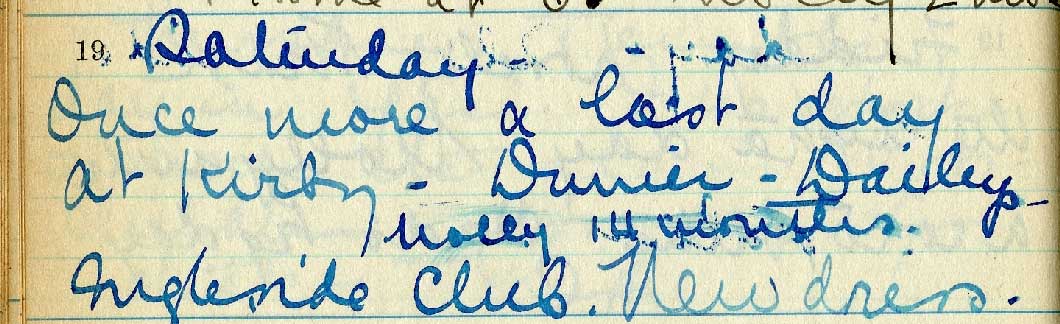 19 Saturday -
Once more a last day
at Kirby - Dinner - Dailey's -
Molly 14 months.
Ingleside Club. New dress.